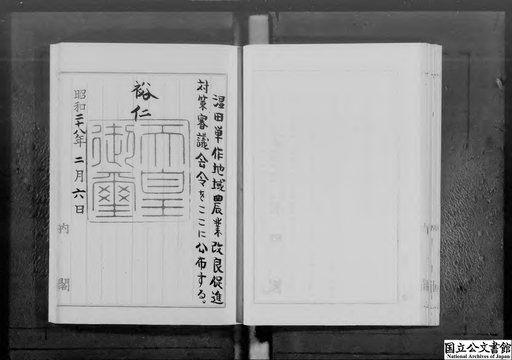 湿田単作地域農業改良促進
対策審議会令をここに公布する。
裕仁
天皇
御璽
昭和二十八年二月六日
内閣
国立公文書館
National Archives of Japan